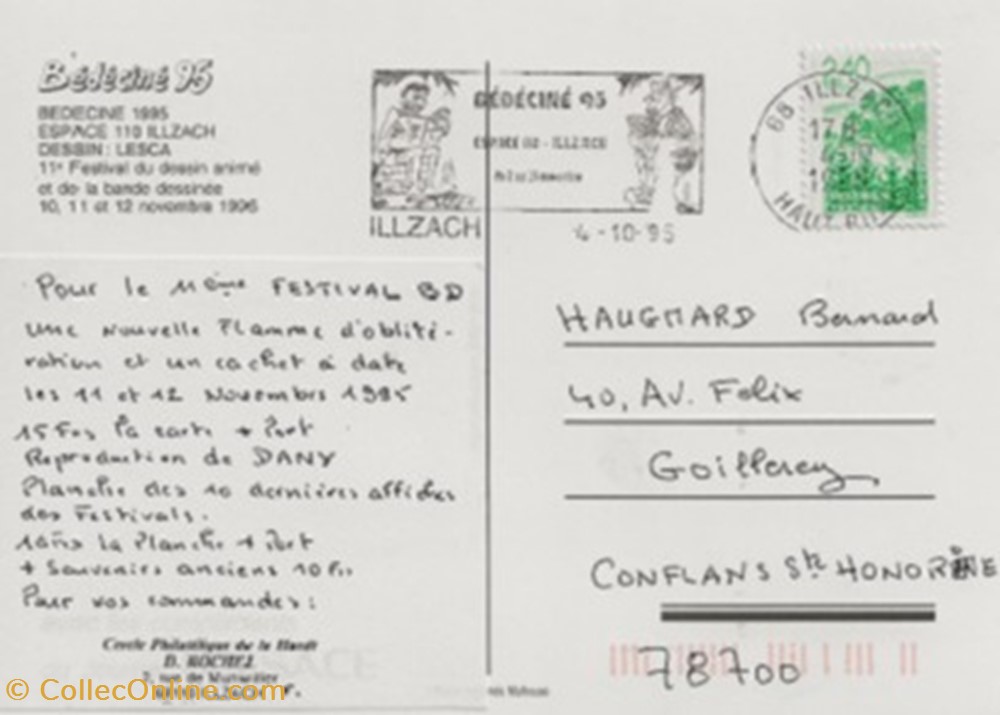 Bédéciné 95
BEDECINE 1995
ESPACE 110 ILLZACH
DESSIN : LESCA
11e Festival du dessin animé
et de la bande dessinée
10, 11 et 12 novembre 1995
BÉDÉCINÉ 95
ESPACE 110 - ILLZACH
ILLZACH
4-10-95
2,40
68 ILLZACH
HAUT RHIN
Pour le 11ème FESTIVAL BD
une nouvelle Flamme d'oblité-
ration et un cachet à date
les 11 et 12 Novembre 1995
15 Frs la carte + Port
Reproduction de DANY
Planche des 10 dernières affiches
des Festivals.
la Planche + Port
+ Souvenirs anciens 10 Frs
Pour vos commandes :
Cercle Philatélique de la Hardt
D. ROCHEL
rue de
HAUGMARD Bernard
40, Av. Felix
Goillerey
CONFLANS Ste HONORINE
78700
© CollecOnline.com